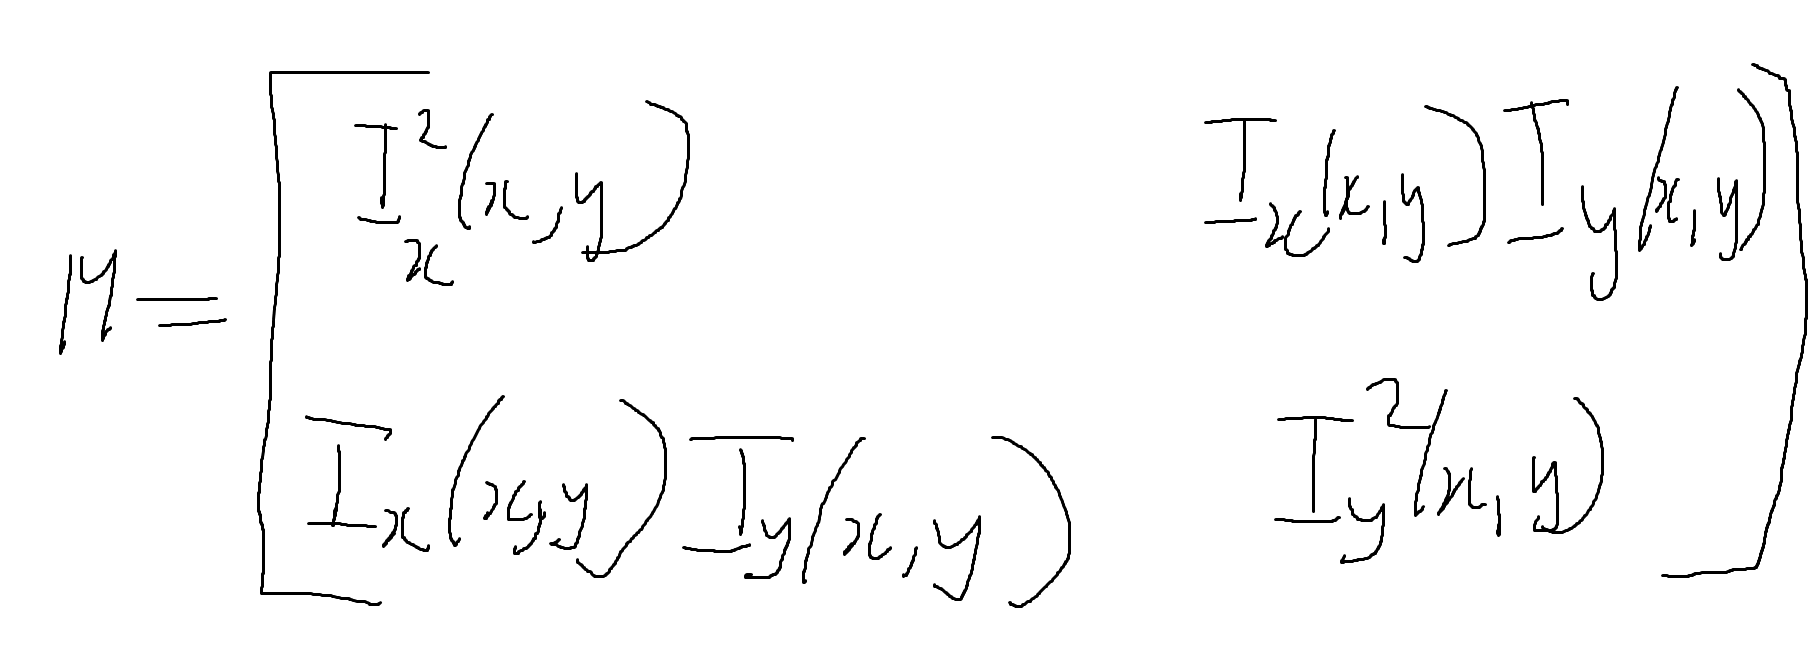 M = [ I_x^2(x,y)   I_x(x,y) I_y(x,y)
I_x(x,y) I_y(x,y)   I_y^2(x,y) ]